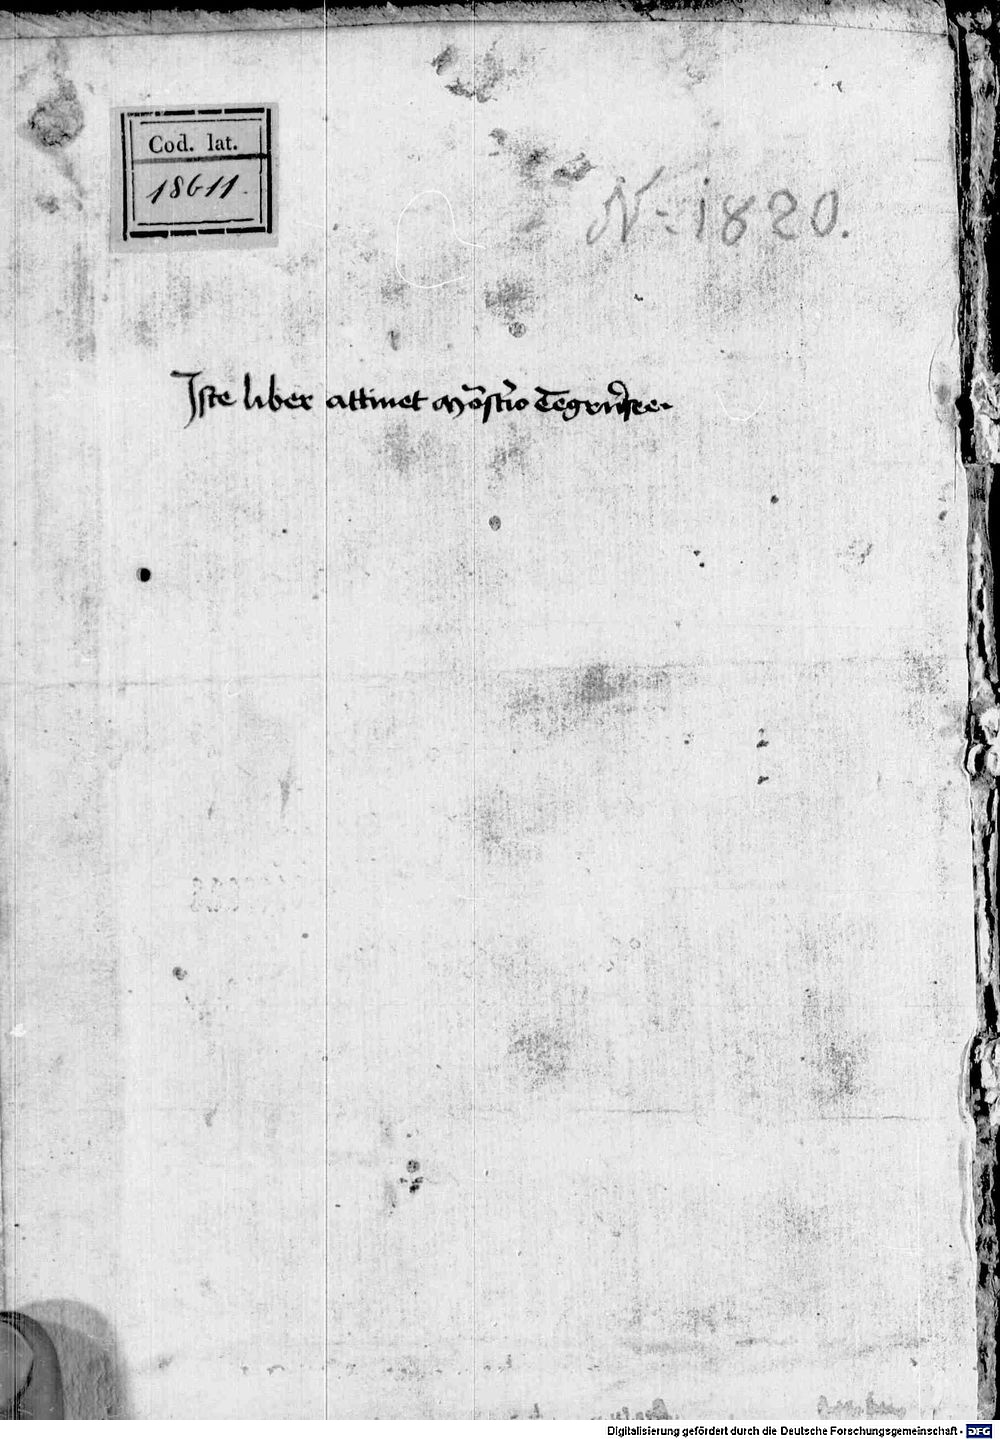 Cod. lat.
18611.
N=1820.
Iste liber attinet mo͞st'io Tegern̄see
Digitalisierung gefördert durch die Deutsche Forschungsgemeinschaft - DFG